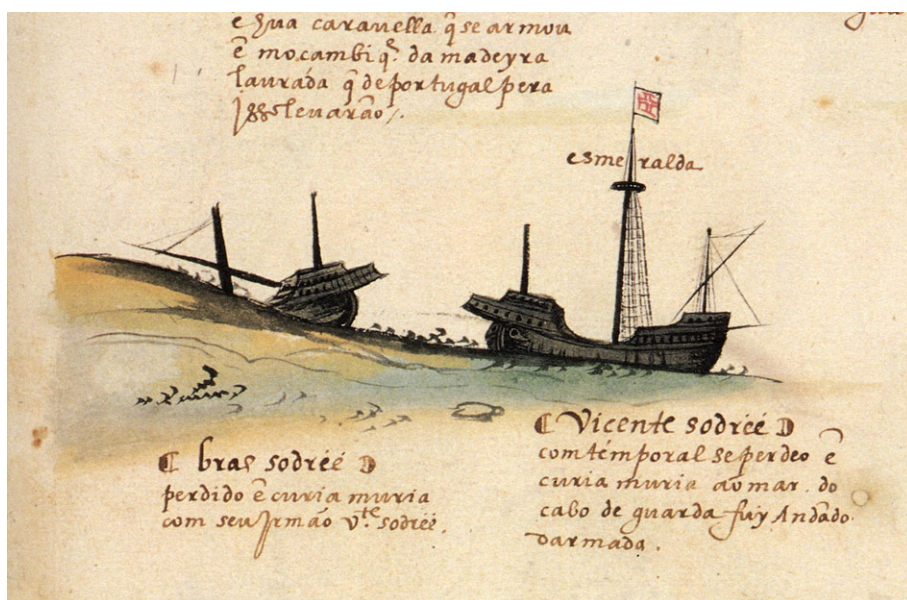 e hua caravella q̃ se armou
ẽ moçambiq̃. da madeyra
laurada q̃ de portugal pera
Isso levarão /.
esmeralda
bras sodreé
perdido ẽ curia muria
com seu Irmão v.te sodreé.
Vicente sodreé
com temporal se perdeo ẽ
curia muria ao mar. do
cabo de guarda fuy Andãdo
darmada.